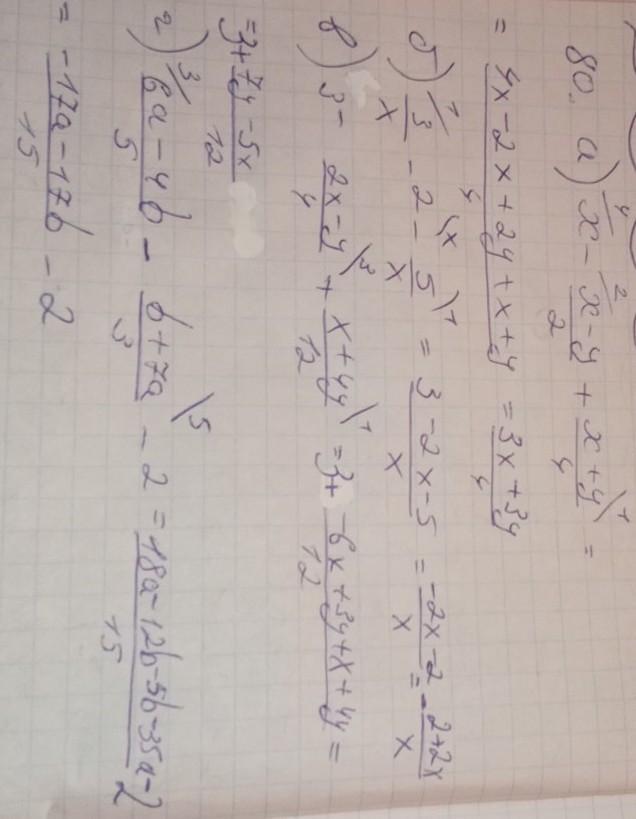 80. а) x\4 - (x-y)/2 \2 + (x+y)/4 \1 =
= (4x-2x+2y+x+y)/4 = (3x+3y)/4
б) 3/x \1 - 2 \x - 5/x \1 = (3-2x-5)/x = (-2x-2)/x = -(2+2x)/x
в) 3 - (2x-y)/4 \3 + (x+4y)/12 \1 = 3+ (-6x+3y+x+4y)/12 =
=3+ (7y-5x)/12
г) (6a-4b)/5 \3 - (b+7a)/3 \5 - 2 = (18a-12b-5b-35a)/15 -2
= (-17a-17b)/15 - 2